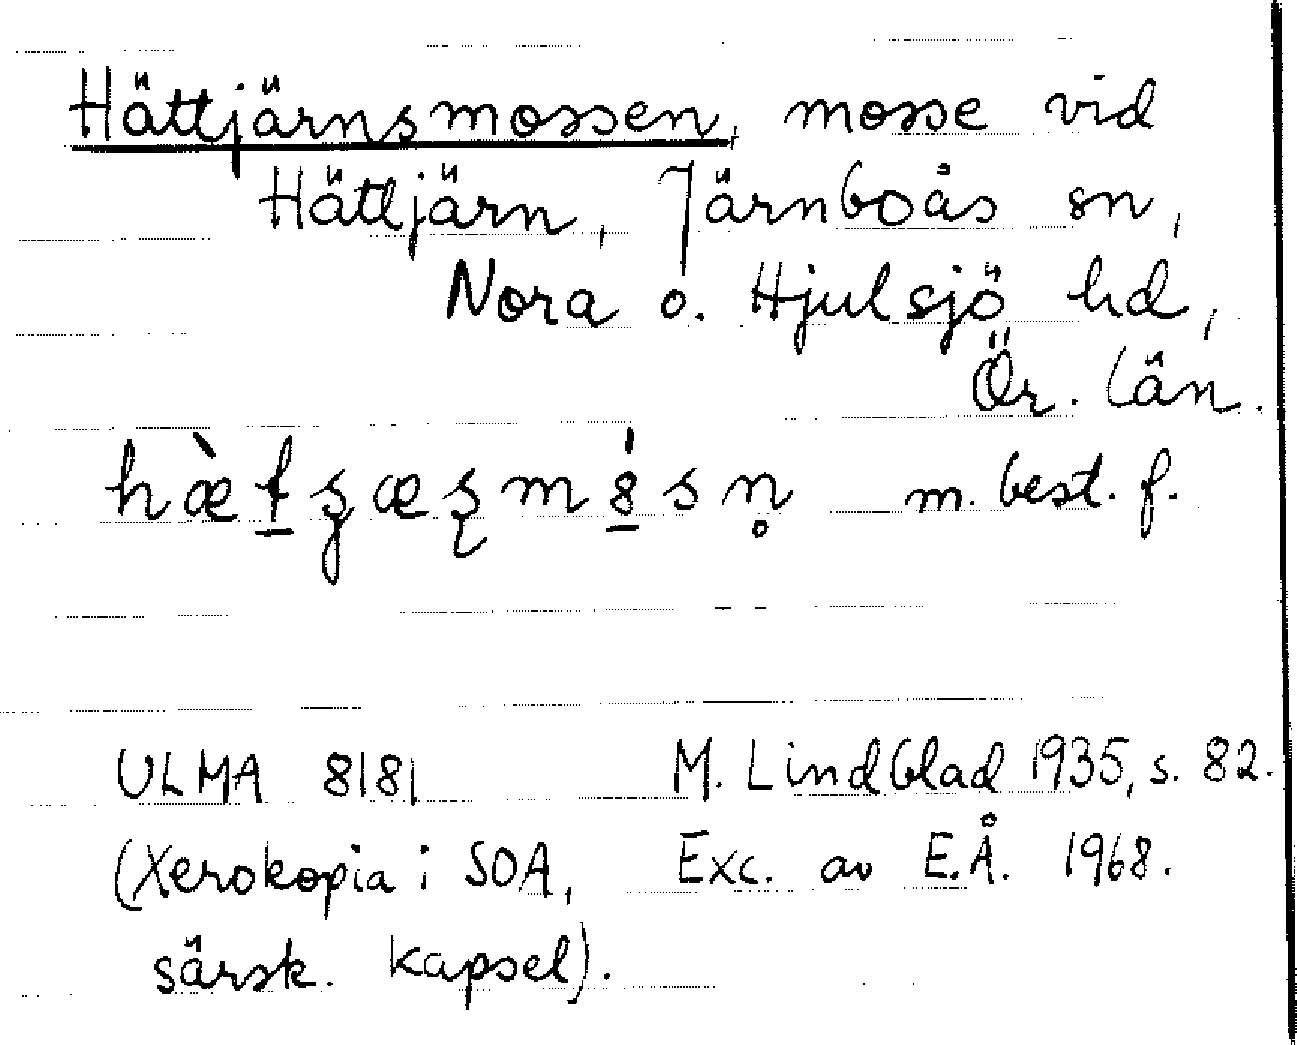 Hättjärnsmossen, mosse vid
Hättjärn, Järnboås sn,
Nora o. Hjulsjö hd,
Ör. län.
m. best. f.
ULMA 8181 M. Lindblad 1935, s. 82.
(Xerokopia i SOA, Exc. av E.Å. 1968.
särsk. kapsel).